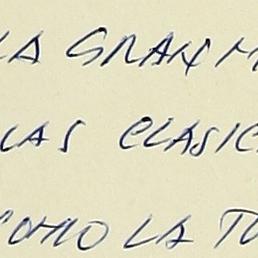 LA GRAN M
LAS CLASIC
COMO LA TO